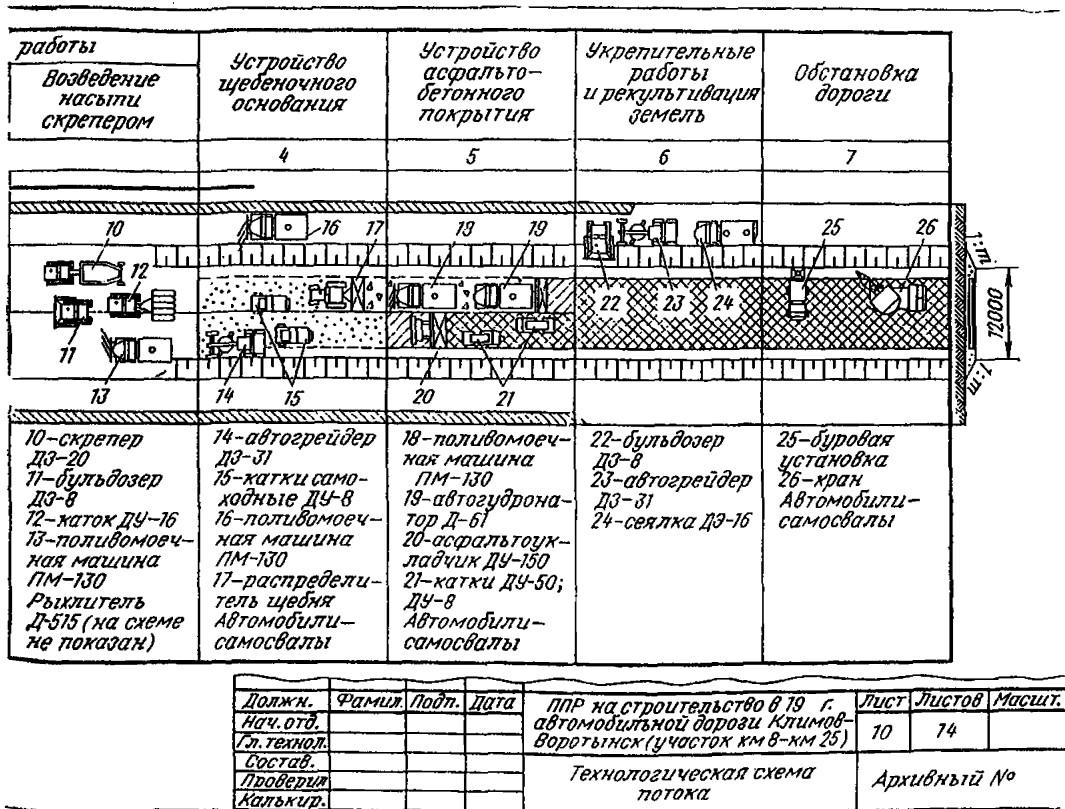 работы
Возведение
насыпи
скрепером
Устройство
щебеночного
основания
Устройство
асфальто-
бетонного
покрытия
Укрепительные
работы
и рекультивация
земель
Обстановка
дороги
4
5
6
7
10
12
11
13
16
17
14
15
18
19
20
21
22
23
24
25
26
1:m
12000
1:m
10-скрепер
ДЗ-20
11-бульдозер
ДЗ-8
12-каток ДУ-16
13-поливомоеч-
ная машина
ПМ-130
Рыхлитель
Д-515 (на схеме
не показан)
14-автогрейдер
ДЗ-31
15-катки само-
ходные ДУ-8
16-поливомоеч-
ная машина
ПМ-130
17-распредели-
тель щебня
Автомобили-
самосвалы
18-поливомоеч-
ная машина
ПМ-130
19-автогудрона-
тор Д-61
20-асфальтоук-
ладчик ДУ-150
21-катки ДУ-50;
ДУ-8
Автомобили-
самосвалы
22-бульдозер
ДЗ-8
23-автогрейдер
ДЗ-31
24-сеялка ДЭ-16
25-буровая
установка
26-кран
Автомобили-
самосвалы
Должн. Фамил. Подп. Дата
Нач. отд.
Гл. технол.
Состав.
Проверил
Калькир.
ППР на строительство в 19 г.
автомобильной дороги Климов-
Воротынск (участок км 8-км 25)
Лист Листов Масшт.
10 14
Технологическая схема
потока
Архивный №